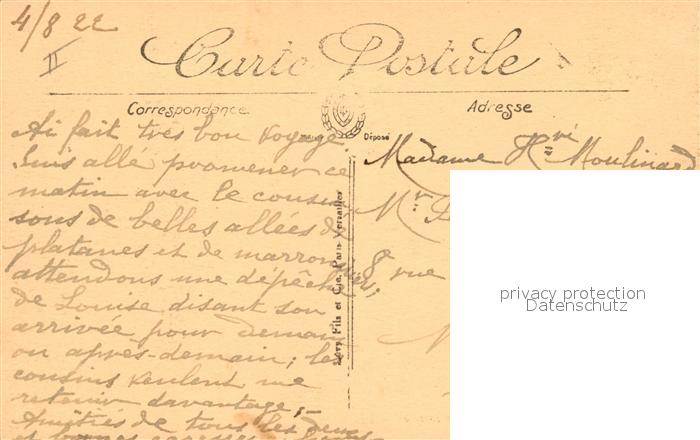 4/8 22
II
Carte Postale
Correspondance
Adresse
Déposé
Ai fait très bon voyage.
Suis allé promener ce
matin avec le cousin
sous de belles allées de
platanes et de marronniers;
attendons une dépêche
de Louise disant son
arrivée pour demain
ou après-demain; les
cousins veulent me
retenir davantage;-
Amitiés de tous les deux
et bonnes caresses
Lévy Fils et Cie, Paris-Versailles
Madame Hvé Moulinard
Mr
8 rue
privacy protection
Datenschutz